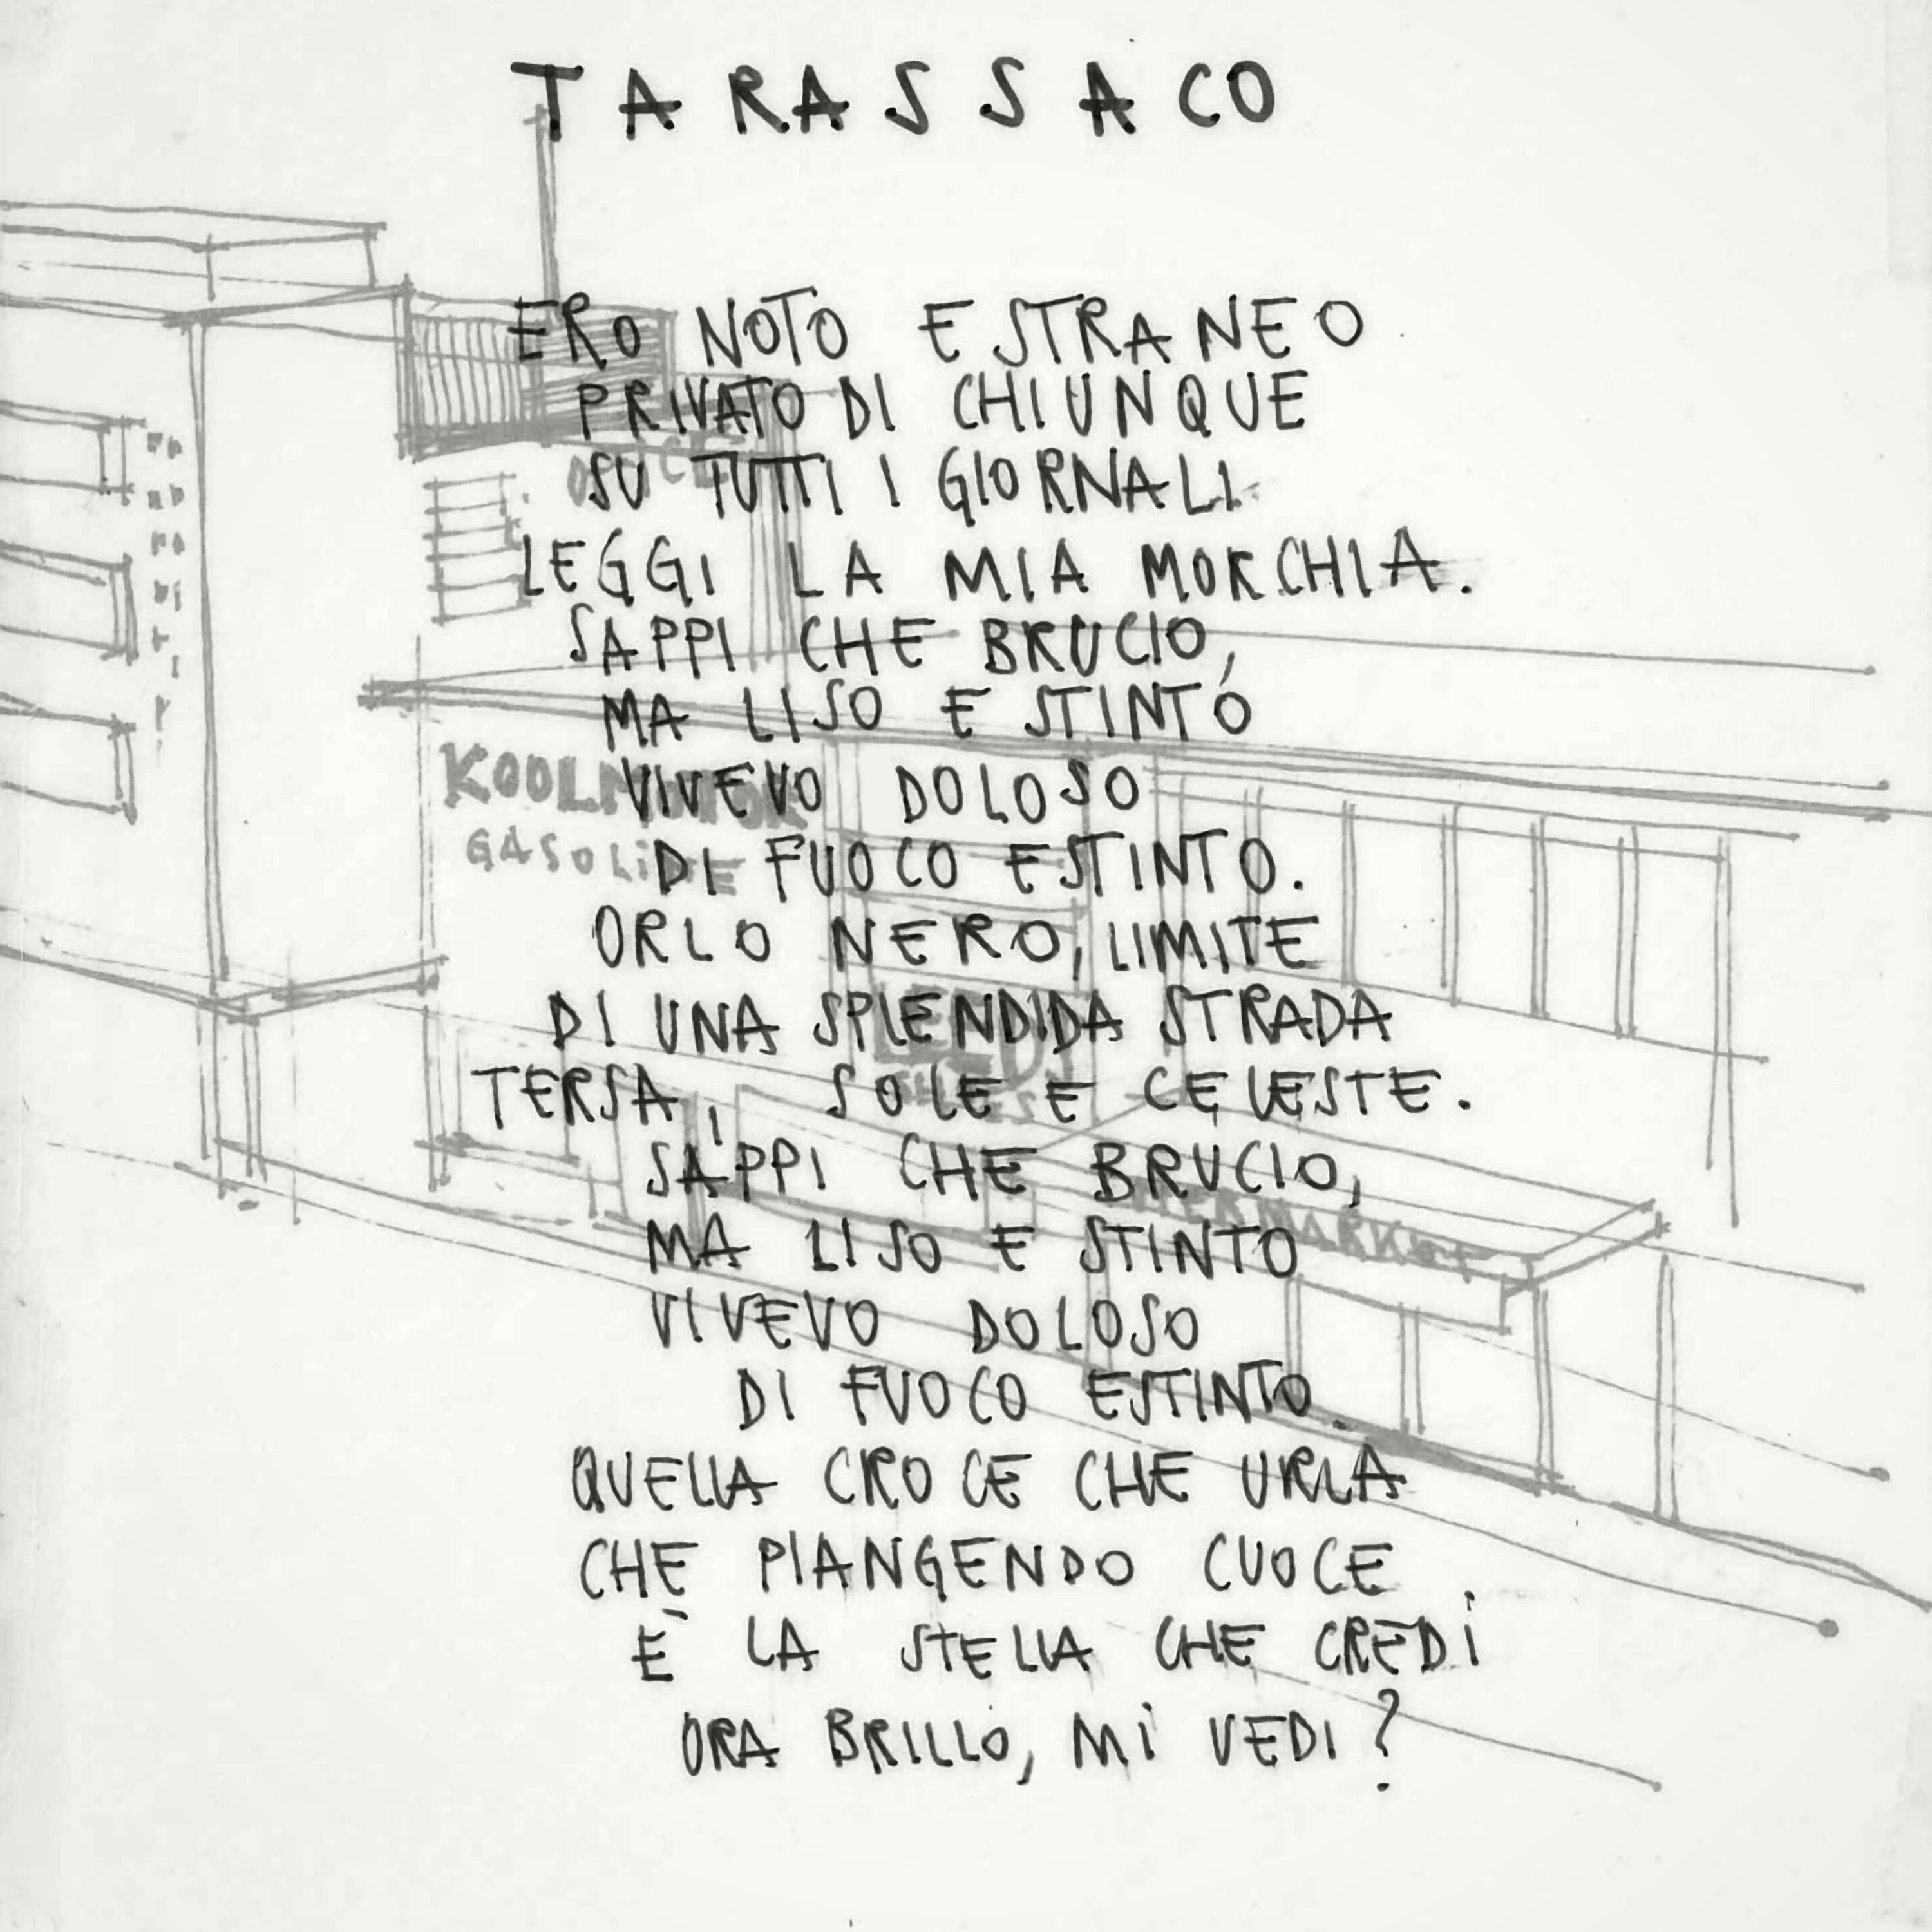 TARASSACO
ERO NOTO ESTRANEO
PRIVATO DI CHIUNQUE
SU TUTTI I GIORNALI
LEGGI LA MIA MORCHIA.
SAPPI CHE BRUCIO,
MA LISO E STINTO
VIVEVO DOLOSO
DI FUOCO ESTINTO.
ORLO NERO, LIMITE
DI UNA SPLENDIDA STRADA
TERSA, SOLE E CELESTE.
SAPPI CHE BRUCIO,
MA LISO E STINTO
VIVEVO DOLOSO
DI FUOCO ESTINTO.
QUELLA CROCE CHE URLA
CHE PIANGENDO CUOCE
È LA STELLA CHE CREDI
ORA BRILLO, MI VEDI?
GASOLINE